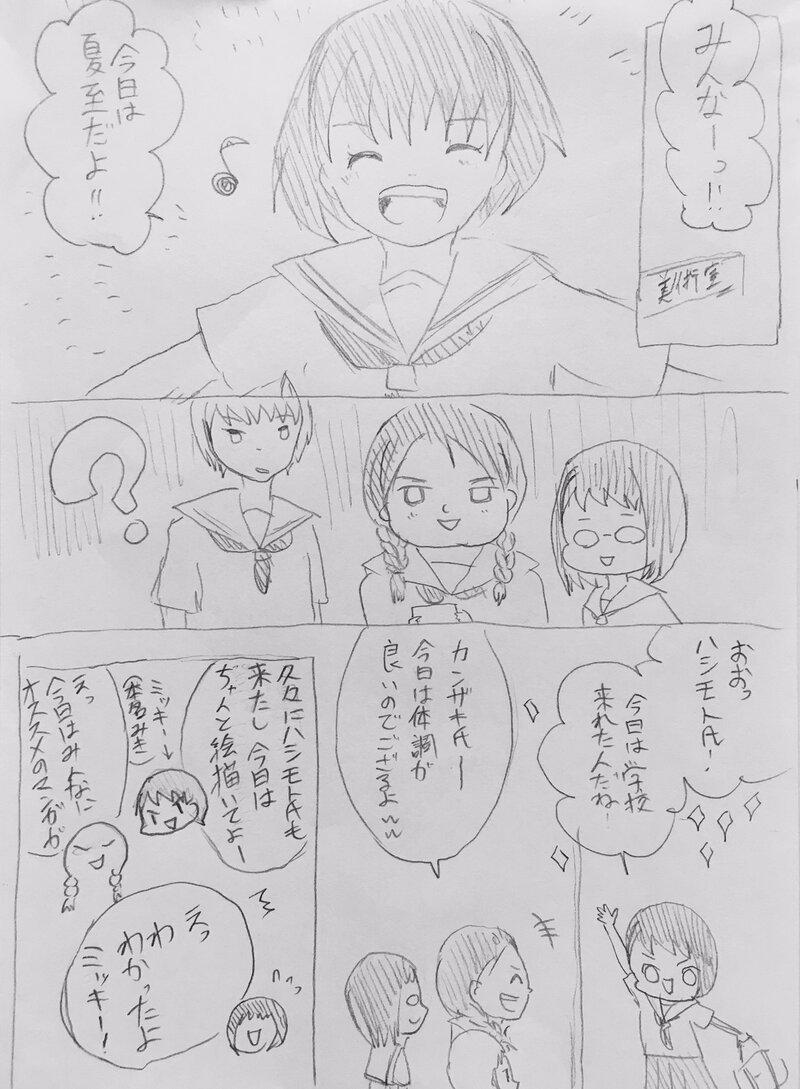 みんなーっ!!
美術室
今日は
夏至だよ!!
?
おおっ
ハシモト氏!
今日は学校
来れたんだね!
カンザキ氏ー
今日は体調が
良いのでござるよ〜〜
久々にハシモト氏も
来たし今日は
ちゃんと絵描いてよー
ミッキー→
(本名みき)
えっ
今日はみんなに
オススメのマンガが
えっ
わわ
わかったよ
ミッキー!